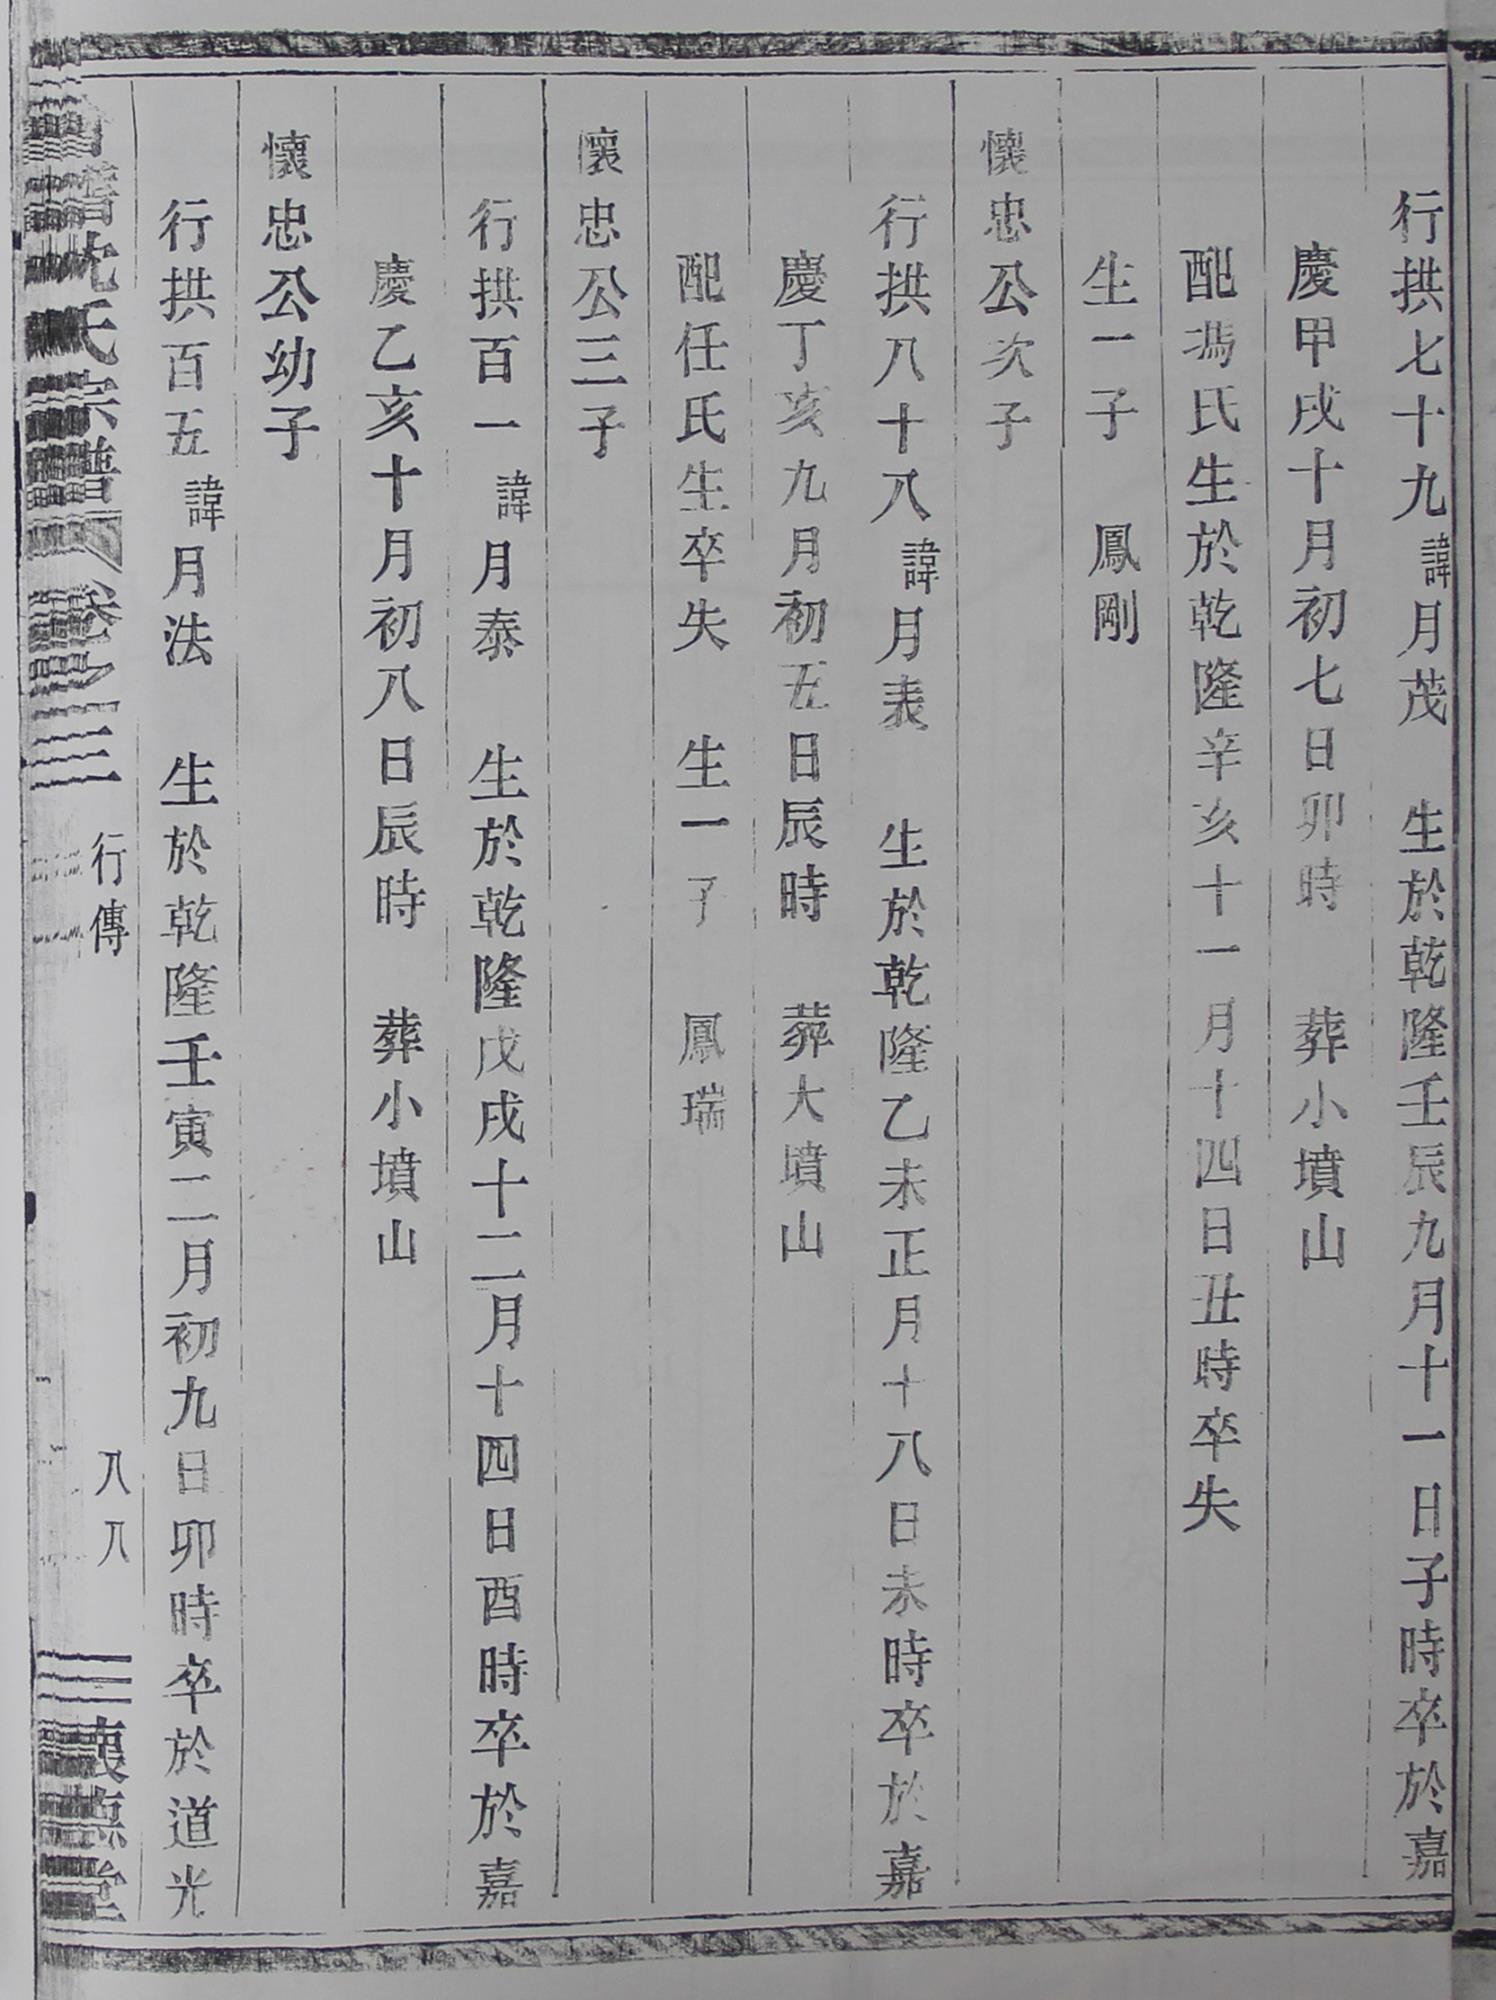 行拱七十九諱月茂　生於乾隆壬辰九月十一日子時卒於嘉
慶甲戌十月初七日卯時　葬小墳山
配馮氏生於乾隆辛亥十一月十四日丑時卒失
生一子　鳳剛
懷忠公次子
行拱八十八諱月表　生於乾隆乙未正月十八日未時卒於嘉
慶丁亥九月初五日辰時　葬大墳山
配任氏生卒失　生一子　鳳瑞
懷忠公三子
行拱百一諱月泰　生於乾隆戊戌十二月十四日酉時卒於嘉
慶乙亥十月初八日辰時　葬小墳山
懷忠公幼子
行拱百五諱月法　生於乾隆壬寅二月初九日卯時卒於道光
沈氏宗譜　卷之三　行傳　八八